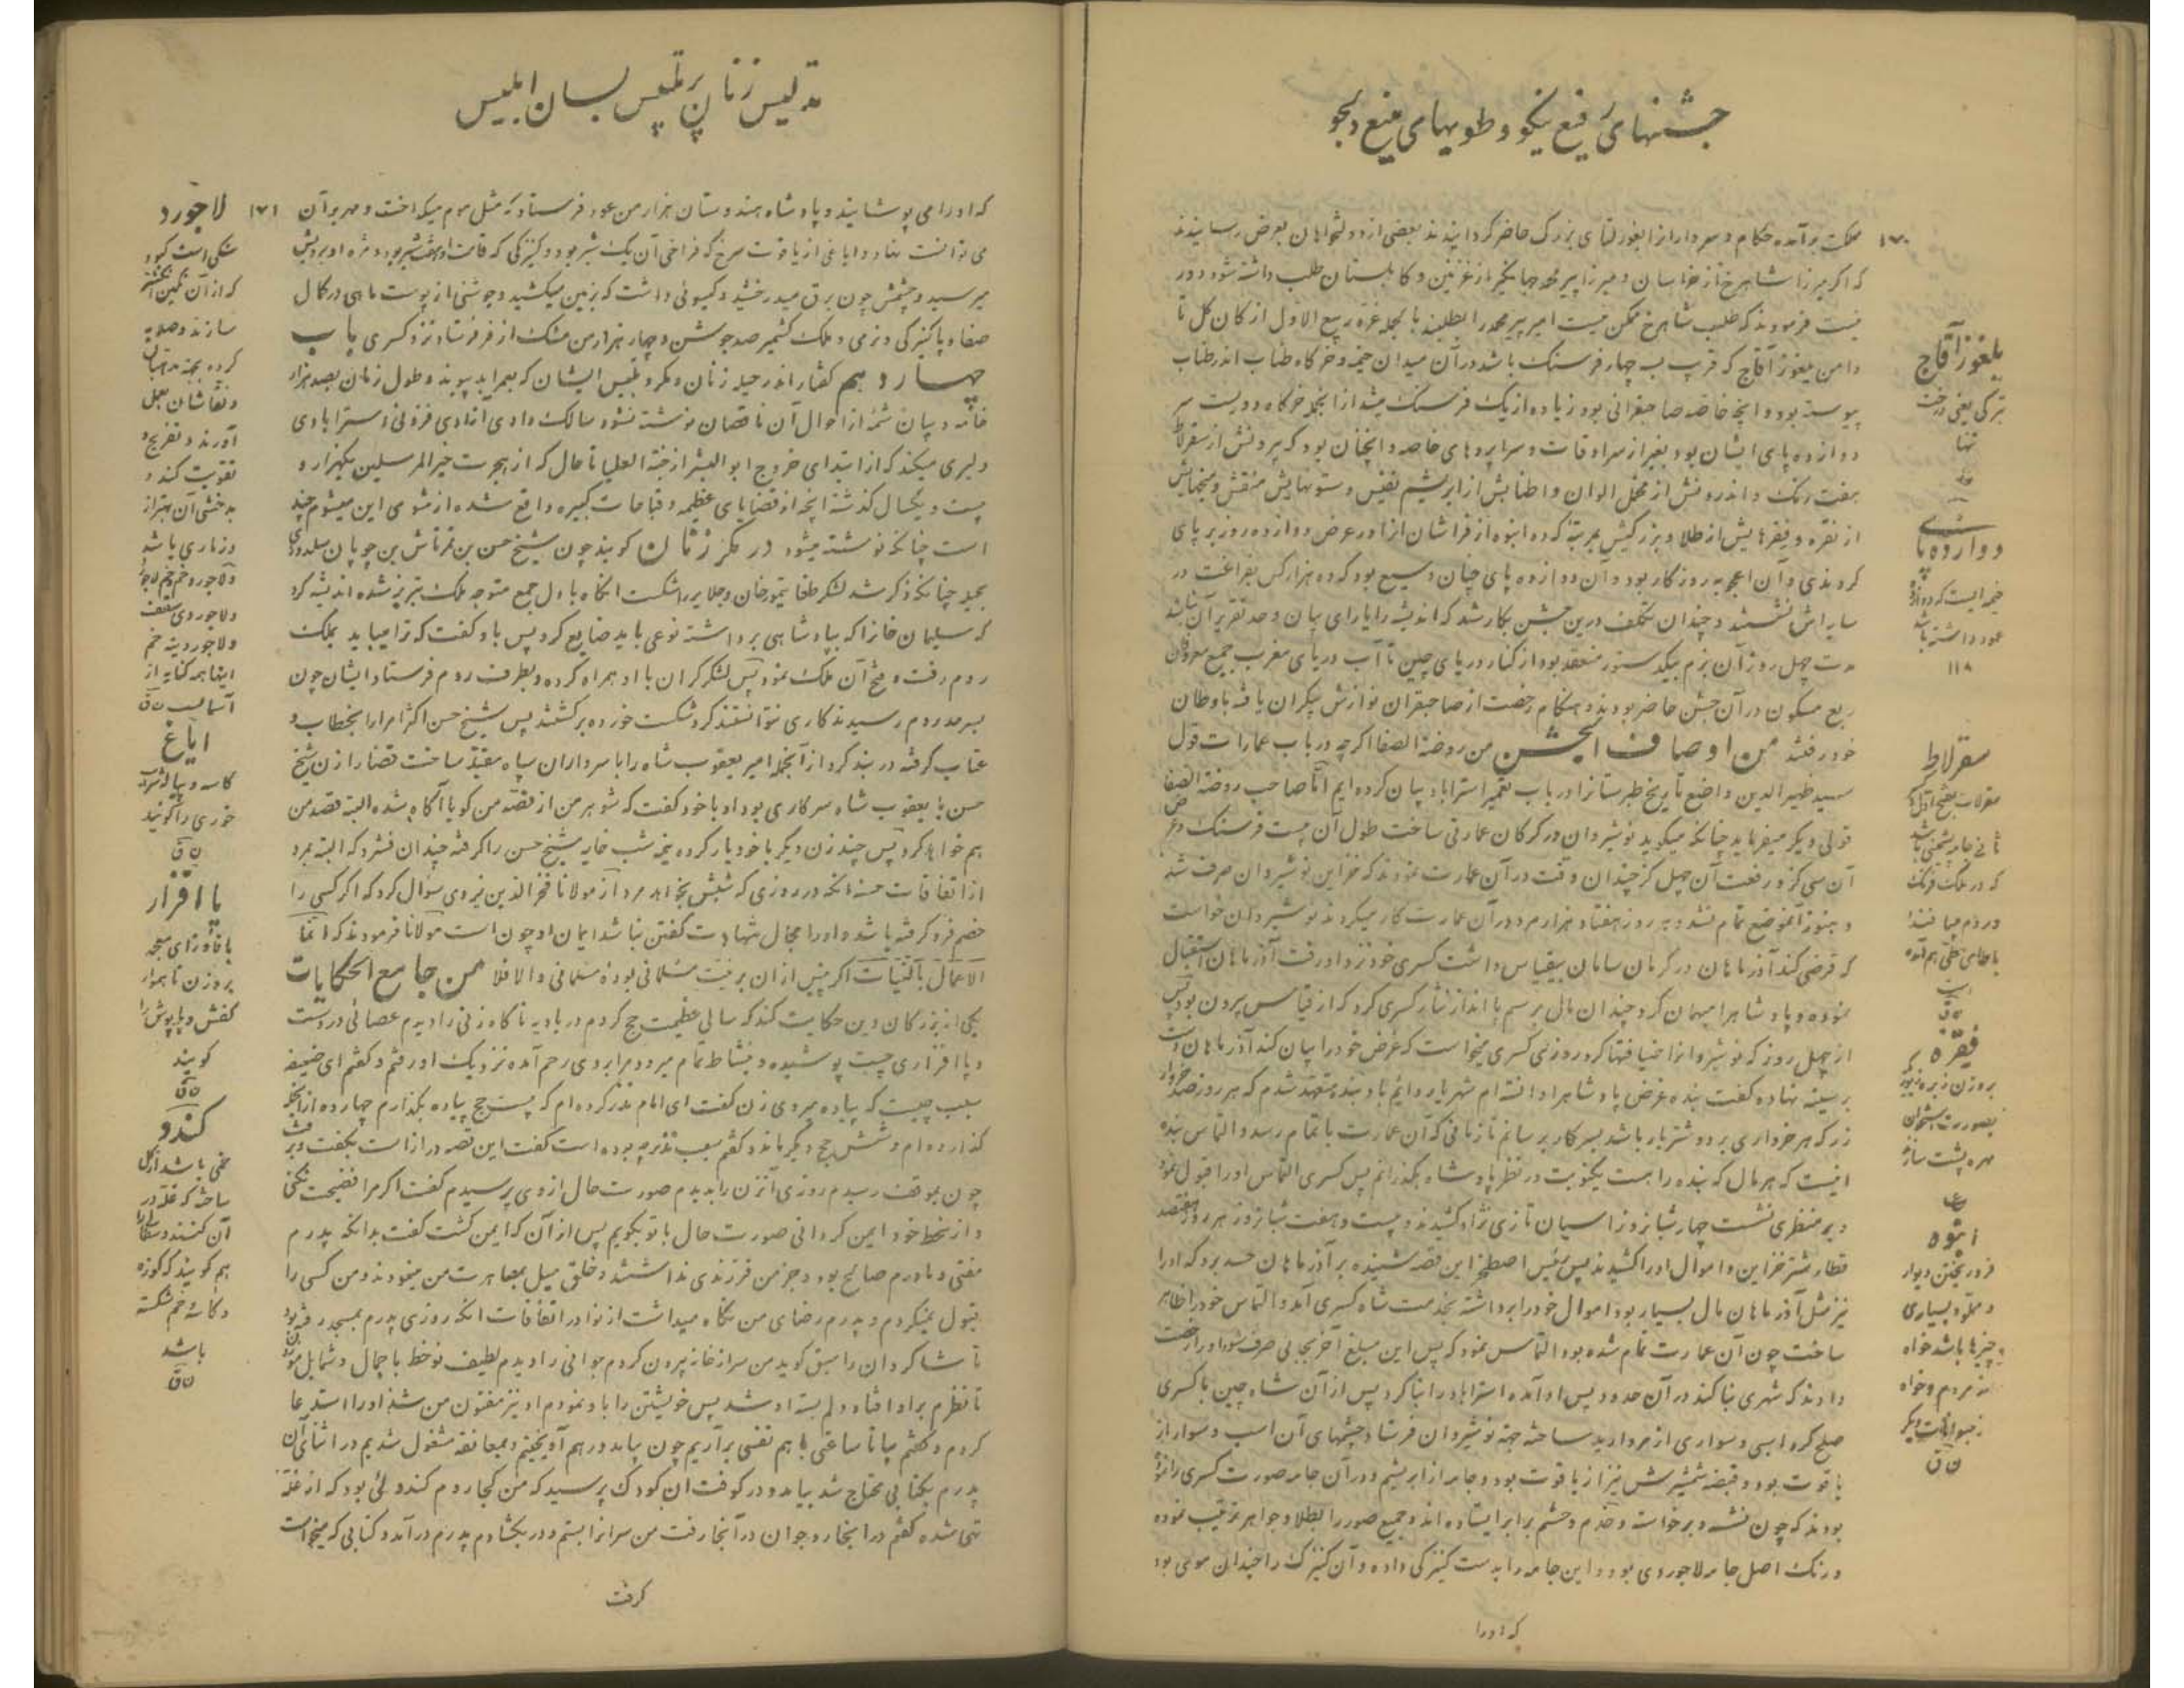 جشنهای رفیع نیکو و طویهای منیع دلجو
۱۷۰
مملکت برآمده حکام و سرداران را بغورلتای بزرگ حاضر گردانیدند بعضی از دولتخواهان بعرض رسانیدند
که اگر میرزا شاهرخ از خراسان و میرزا پیر محمد جهانگیر از غزنین و کابلستان طلب داشته شود دور
نیست فرمودند که طلب شاهرخ ممکن نیست امیر پیر محمد را بطلبند بالجمله غره ربیع الاول از کان گل تا
دامن یلغوز آقاج که قریب بچهار فرسنگ باشد در آن میدان خیمه و خرگاه طناب اندر طناب
پیوسته بود و آنچه خاصه صاحبقرانی بود زیاده از یک فرسنگ میشد از آنجمله خرگاه دویست سر
دوازده پای ایشان بود بغیر از سرادقات و سراپرده‌های خاصه و آنچنان بود که بیرونش از سقرلاط
هفت رنگ و اندرونش از مخمل الوان و اطنابش از ابریشم نفیس و ستونهایش منقش و میخهایش
از نقره و فیقرهایش از طلا و بزرگیش بمرتبه که ده انبوه از فراشان آنرا در عرض دوازده روز برپای
کردندی و آن اعجوبه روزگار بود و آن دوازده پای چنان وسیع بود که ده هزار کس بفراغت در
سایه‌اش نشستند و چندان تکلف درین جشن بکار شد که اندیشه را یارای بیان و حد تقریر آن نباشد
مدت چهل روز آن بزم بیک دستور منعقد بود از کنار دریای چین تا آب دریای مغرب جمیع معروفان
ربع مسکون در آن جشن حاضر بودند و هنگام رخصت از صاحبقران نوازش بیکران یافته باوطان
خود رفتند من اوصاف الجشن من روضة الصفا اگرچه در باب عمارات قول
سید ظهیر الدین واضع تاریخ طبرستانرا در باب تعمیر استراباد بیان کرده‌ایم اما صاحب روضة الصفا
قولی دیگر میفرماید چنانکه میگوید نوشیروان در گرگان عمارتی ساخت طول آن بیست فرسنگ و عرض
آن سی گز و رفعت آن چهل گز چندان وقت در آن عمارت نمودند که خزاین نوشیروان صرف شد
و هنوز آنموضع تمام نشد و به روز هفتاد هزار مرد در آن عمارت کار میکردند نوشیروان خواست
که قرضی کند آذرماهان در کرمان سامان بیقیاس داشت کسری خود نزد او رفت آذرماهان استقبال
نموده و پادشاه را میهمان کرد چندان مال برسم پا انداز نثار کسری کرد که از قیاس بیرون بود پس
از چهل روز که نوشیروانرا ضیافتها کرد روزی کسری میخواست که غرض خود را بیان کند آذرماهان دست
بر سینه نهاده گفت بنده غرض پادشاه را دانسته‌ام شهریار دایم باد بنده متعهد شدم که هر روز صد خروار
زر که هر خرواری بر دو شتر بار باشد بسرکار برسانم تا زمانی که آن عمارت باتمام رسد و التماس بنده
اینست که هر مال که بنده را هست یکنوبت در نظر پادشاه بگذرانم پس کسری التماس او را قبول نمود
و بر منظری نشست چهار شبانروز اسپان تازی نژاد کشیدند و بیست و هفت شبانروز هر روز هفتصد
قطار شتر خزاین و اموال او را کشیدند پس رئیس اصطخر این قصه شنیده بر آذرماهان حسد برد که او را
نیز مثل آذرماهان مال بسیار بود اموال خود را برداشته بخدمت شاه کسری آمد و التماس خود را ظاهر
ساخت چون آن عمارت تمام شده بود التماس نمود که پس این مبلغ آخر بجائی صرف شود او را رخصت
دادند که شهری بنا کند در آن حدود پس او آمده استراباد را بنا کرد پس از آن شاه چین با کسری
صلح کرد اسبی و سواری از مروارید ساخته جهة نوشیروان فرستاد چشمهای آن اسب و سوار از
یاقوت بود و قبضه شمشیرش نیز از یاقوت بود و جامه از ابریشم و در آن جامه صورت کسری را نموده
بودند که چون نشسته و برخاسته و خدم و حشم برابر ایستاده‌اند و جمیع صور را بطلا و جواهر ترتیب نموده
و رنگ اصل جامه لاجوردی بود و این جامه را بدست کنیزکی داده و آن کنیزک را چندان موی بود
که او را
یلغوز آقاج
ترکی یعنی درخت
تنها
دوازده پا
خیمه ایست که دوازده
عمود داشته باشد
۱۱۸
سقرلاط
سقرلات بفتح اول و
ثانی جامه پشمی باشد
که در ملک فرنگ
و روم میبافند
با طای حطی هم آمده
است
ن ق
فیقره
بروزن
بصورت استخوان
مهره پشت سازند
انبوه
فرو ریختن دیوار
و مملو و بسیاری
چیزها باشد خواه
از مردم و خواه
از حیوانات دیگر
ن ق
تدلیس زنان پر تلبیس بسان ابلیس
۱۷۱
که او را می‌پوشانید و پادشاه هندوستان هزار من عود فرستاد که مثل موم میگداخت و مهر بر آن
می‌توانست نهاد و ایاغی از یاقوت سرخ که فراخی آن یک شبر بود و کنیزکی که قامت او هفت شبر بود و مژه او بر رویش
میرسید و چشمش چون برق میدرخشید و گیسوئی داشت که بزمین میکشید و جوشنی از پوست ماهی در کمال
صفا و پاکیزگی و نرمی و ملک کشمیر صد جوشن و چهار هزار من مشک از فر فرستاد نزد کسری باب
چهاردهم گفتار اندر حیله زنان و مکر و تلبیس ایشان که بعمر ابد پیوند و طول زمان بصد هزار
خامه و بیان شمهٔ از احوال آن ناقصان نوشته نشود سالک وادی آزادی فزونی استرابادی
دلیری میکند که از ابتدای خروج ابوالبشر از جنة العلیا تا حال که از هجرت خیر المرسلین یکهزار و
بیست و یکسال گذشته آنچه از قضایای عظیمه و قباحات کبیره واقع شده از شومی این میشوم چند
است چنانکه نوشته میشود در مکر زنان گویند چون شیخ حسن بن تمرتاش بن چوپان سلدوزی
بحیله چنانکه ذکر شد لشکر طغا تیمورخان و جلایر را شکست آنگاه با دل جمع متوجه ملک تبریز شده اندیشه کرد
که سلیمان خانرا که بپادشاهی برداشته نوعی باید ضایع کرد پس باو گفت که ترا میباید بملک
روم رفت و فتح آن ملک نمود پس لشکر گران با او همراه کرده و بطرف روم فرستاد ایشان چون
بسرحد روم رسیدند کاری نتوانستند کرد شکست خورده برگشتند پس شیخ حسن اکثر امرا را بخطاب و
عتاب گرفته در بند کرد از آنجمله امیر یعقوب شاه را با سرداران سپاه مقید ساخت قضا را زن شیخ
حسن با یعقوب شاه سرکاری بود او با خود گفت که شوهر من از قصه من گویا آگاه شده البته قصد من
هم خواهد کرد پس چند زن دیگر با خود یار کرده نیمه شب خایه شیخ حسن را گرفته چندان فشرد که البته بمرد
از اتفاقات حسنه آنکه در روزی که شبش بخواهد مرد از مولانا فخر الدین نیزوی سؤال کرد که اگر کسی را
خصم فرو گرفته باشد و او را مجال شهادت گفتن نباشد ایمان او چون است مولانا فرمودند که انما
الاعمال بالنیات اگر پیش از آن بر نیت مسلمانی بوده مسلمانی والا فلا من جامع الحکایات
یکی از بزرگان دین حکایت کند که سالی عظیمت حج کردم در بادیه ناگاه زنی را دیدم عصائی در دست
و پا افزاری چست پوشیده و بنشاط تمام میرود مرا بر وی رحم آمده نزدیک او رفتم و گفتم ای ضعیفه
سبب چیست که پیاده میروی زن گفت ای امام نذر کرده‌ام که بیست حج پیاده بگذارم چهارده از آنجمله
گذارده‌ام و شش حج دیگر مانده گفتم سبب نذر چه بوده است گفت این قصه دراز است بگفت و برفت
چون بموقف رسیدم روزی آنزن را بدیدم صورت حال از وی پرسیدم گفت اگر مرا فضیحت نکنی
و از سخط خود ایمن گردانی صورت حال با تو بگویم پس از آن که ایمن گشت گفت بدانکه پدرم
مفتی و مادرم صالح بود و جز من فرزندی نداشتند و خلق میل بمصاهرت من مینمودند و من کسی را
قبول نمیکردم و پدرم رضای من نگاه میداشت از نوادر اتفاقات آنکه روزی پدرم بمسجد رفته بود
تا شاگردان را سبق گوید من سر از خانه بیرون کردم جوانی را دیدم لطیف نوخط با جمال و شمایل موزون
تا نظرم بر او افتاد دلم بسته او شد پس خویشتن را باو نمودم او نیز مفتون من شد او را استدعا
کردم و گفتم بیا تا ساعتی با هم نفسی برآریم چون بیامد در هم آویختیم و بمعانقه مشغول شدیم در اثنای آن
پدرم بکتابی محتاج شد بیامد و در کوفت آن کودک پرسید که من کجا روم کندوئی بود که از غله
تهی شده گفتم در آنجا رو جوان در آنجا رفت من سر آنرا بستم و در بگشادم پدرم درآمد و کتابی که میخواست
گرفت
لاجورد
سنگی است کبود
که از آن نگین انگشتر
سازند و صلایه
کرده بجهة مذهبان
و نقاشان بعمل
آورند و تفریح و
تقویت کند و
بدخشی آن بهتر از
دزماری باشد
و لاجورد خم و خم لاجورد
و لاجوردی سقف
و لاجوردینه خم
اینها همه کنایه از
آسمانست ن ق
ایاغ
کاسه و پیاله شراب
خوری را گویند
ن ق
پا افزار
با فا و زای معجمه
بروزن ناهموار
کفش و پاپوش را
گویند
ن ق
کندو
خمی باشد از گل
ساخته که غله در
آن کنند
هم گویند که کوزه
و کاسه و خم شکسته
باشد
ن ق